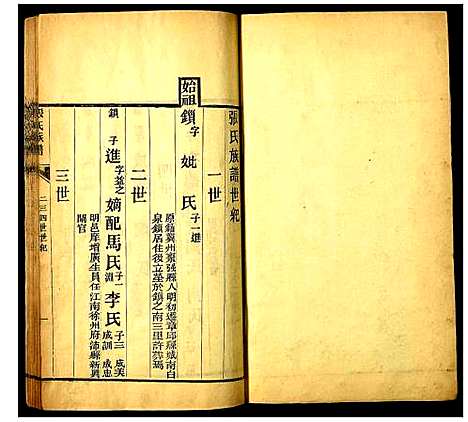 張氏族譜世紀
一世
始祖鎖字 妣氏子一進
原籍冀州棗强縣人明初遷章邱縣城南白
泉鎖居住後立塋於鎮之南三里許葬焉
二世
鎖子進字益之 嫡配馬氏子一淵 李氏子三成美成訓成忠
明邑庠增廣生員任江南徐州府沛縣新興
閘官
三世
張氏族譜
二三四世世紀